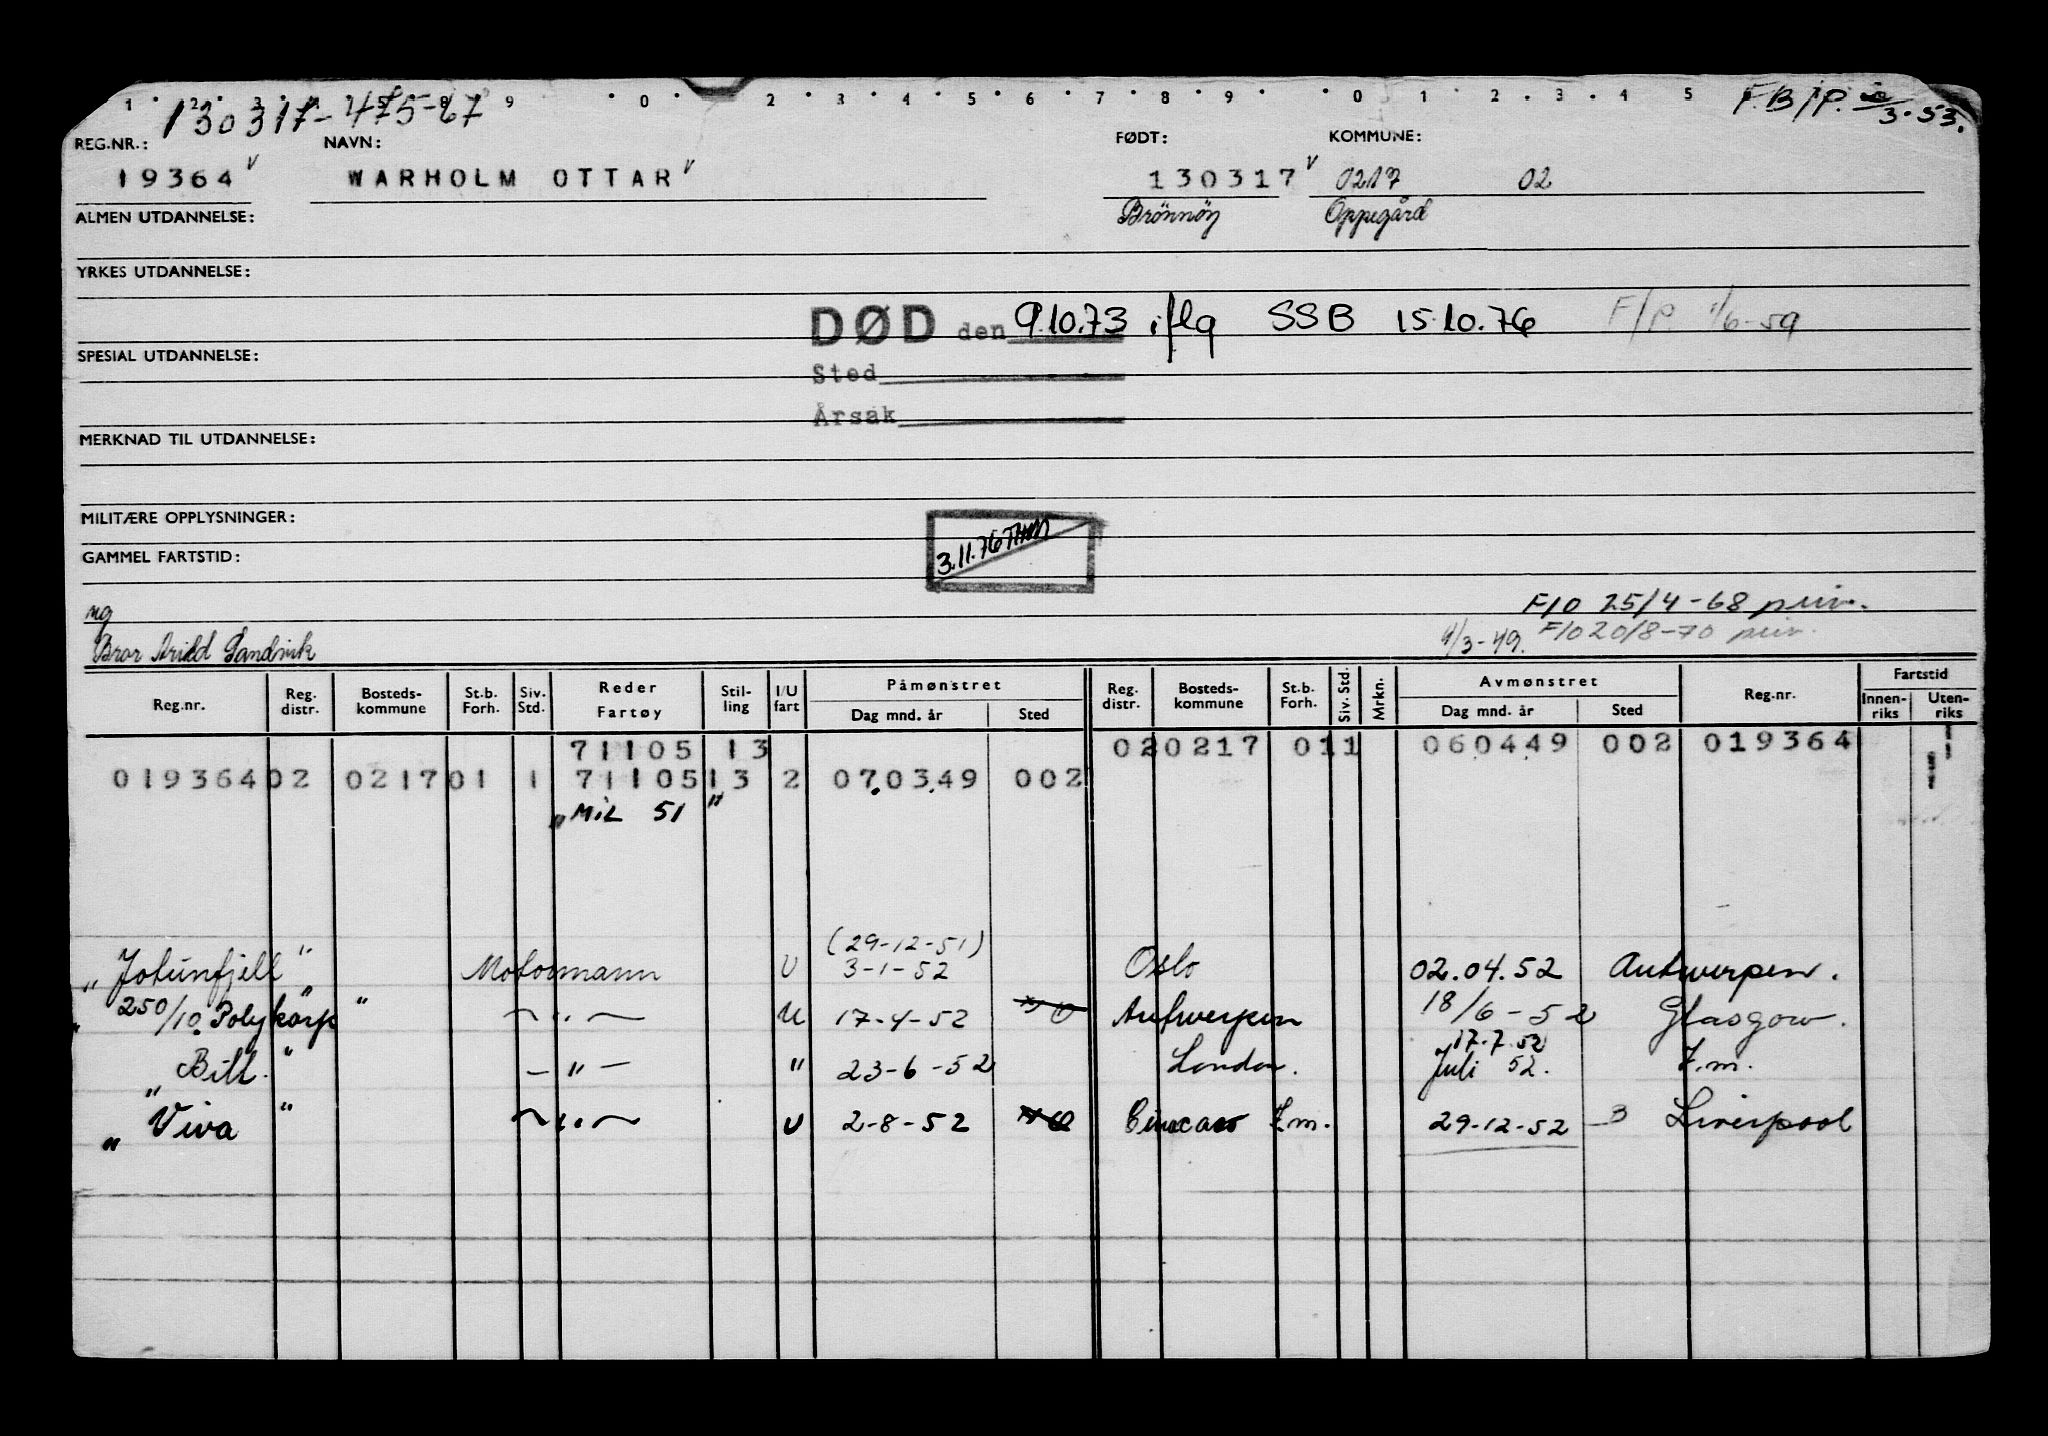 1 2 3 5 8 9 0 2 3 4 5 6 7 8 9 0 1 2 3 4 5
130317-47567 F.B/P. 3.53.
REG.NR.: NAVN: FØDT: KOMMUNE:
19364 v WARHOLM OTTAR v 130317 v 0217 02
ALMEN UTDANNELSE: Brönnöy Oppegård
YRKES UTDANNELSE:
DØD den 9.10.73 iflg SSB 15.10.76 F/P. 1/6-59
SPESIAL UTDANNELSE:
Sted
Årsak
MERKNAD TIL UTDANNELSE:
MILITÆRE OPPLYSNINGER:
3.11.76
GAMMEL FARTSTID:
ng F/O 25/4-68 priv.
Bror Arild Sandvik 9/3-49. F/O 20/8-70 priv.
Reg.nr. Reg. distr. Bosteds- kommune St.b. Forh. Siv. Std. Reder Fartøy Stil- ling I/U fart Påmønstret Dag mnd. år Sted Reg. distr. Bosteds- kommune St.b. Forh. Siv. Std. Mrkn. Avmønstret Dag mnd. år Sted Reg.nr. Fartstid Innen- riks Uten- riks
71105 13 020217 011 060449 002 019364 1
019364 02 0217 01 1 71105 13 2 07.03.49 002 1
"MiL 51"
(29-12-51)
"Jotunfjell" Motormann U 3-1-52 Oslo 02.04.52 Antwerpen.
"250/10. Polykarp" -"- U 17-4-52 Antwerpen 18/6-52 Glasgow.
17.7.52
"Bill." -"- " 23-6-52 London. Juli 52. T.m.
"Viva" -"- U 2-8-52 T.m. 29-12-52 B Liverpool